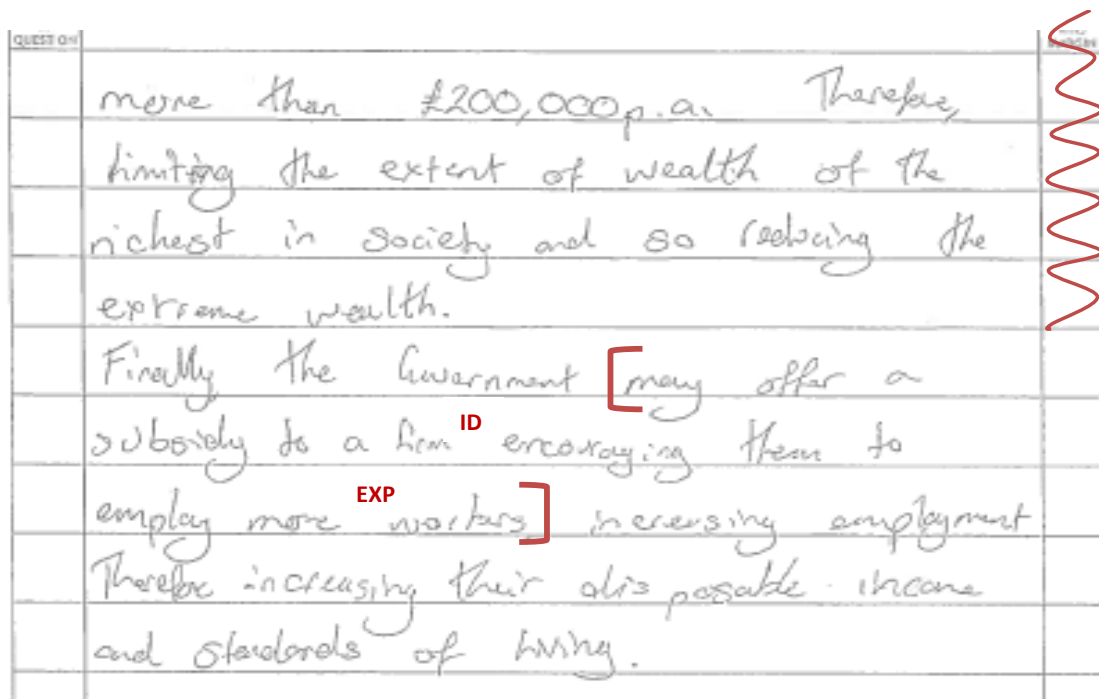 QUESTION
more than £200,000 p.a. Therefore,
limiting the extent of wealth of the
richest in society and so reducing the
extreme wealth.
Finally the Government [may offer a
subsidy to a firm ID encouraging them to
EXP
employ more workers] increasing employment
Therefore increasing their disposable income
and standards of living.